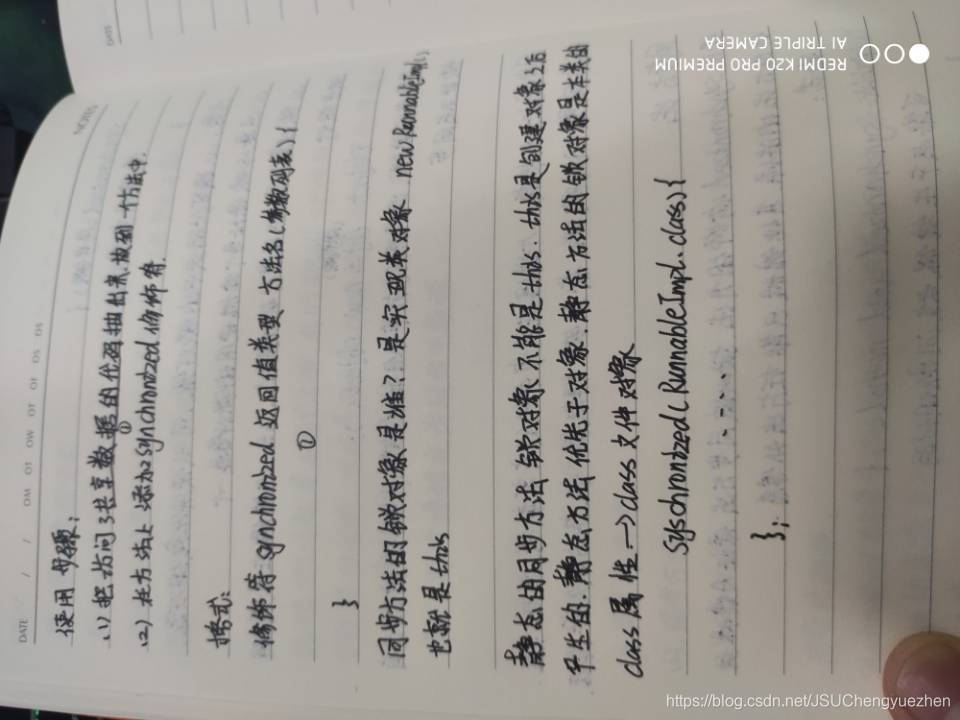 NOTES
DATE / / OM OT OW OT OF OS OS
使用步骤:
(1) 把访问了共享数据的代码抽出来,放到一个方法中.
①
(2) 在方法上添加synchronized修饰符.
格式:
修饰符 synchronized 返回值类型 方法名(参数列表){
①
}
同步方法的锁对象是谁?是实现类对象 new RunnableImpl();
也就是this
静态的同步方法 锁对象不能是this. this是创建对象之后
产生的.静态方法优先于对象.静态方法的锁对象是本类的
class属性→class文件对象
Syschronized(RunnableImpl.class){
.....
};
DATE
REDMI K20 PRO PREMIUM
AI TRIPLE CAMERA
https://blog.csdn.net/JSUChengyuezhen